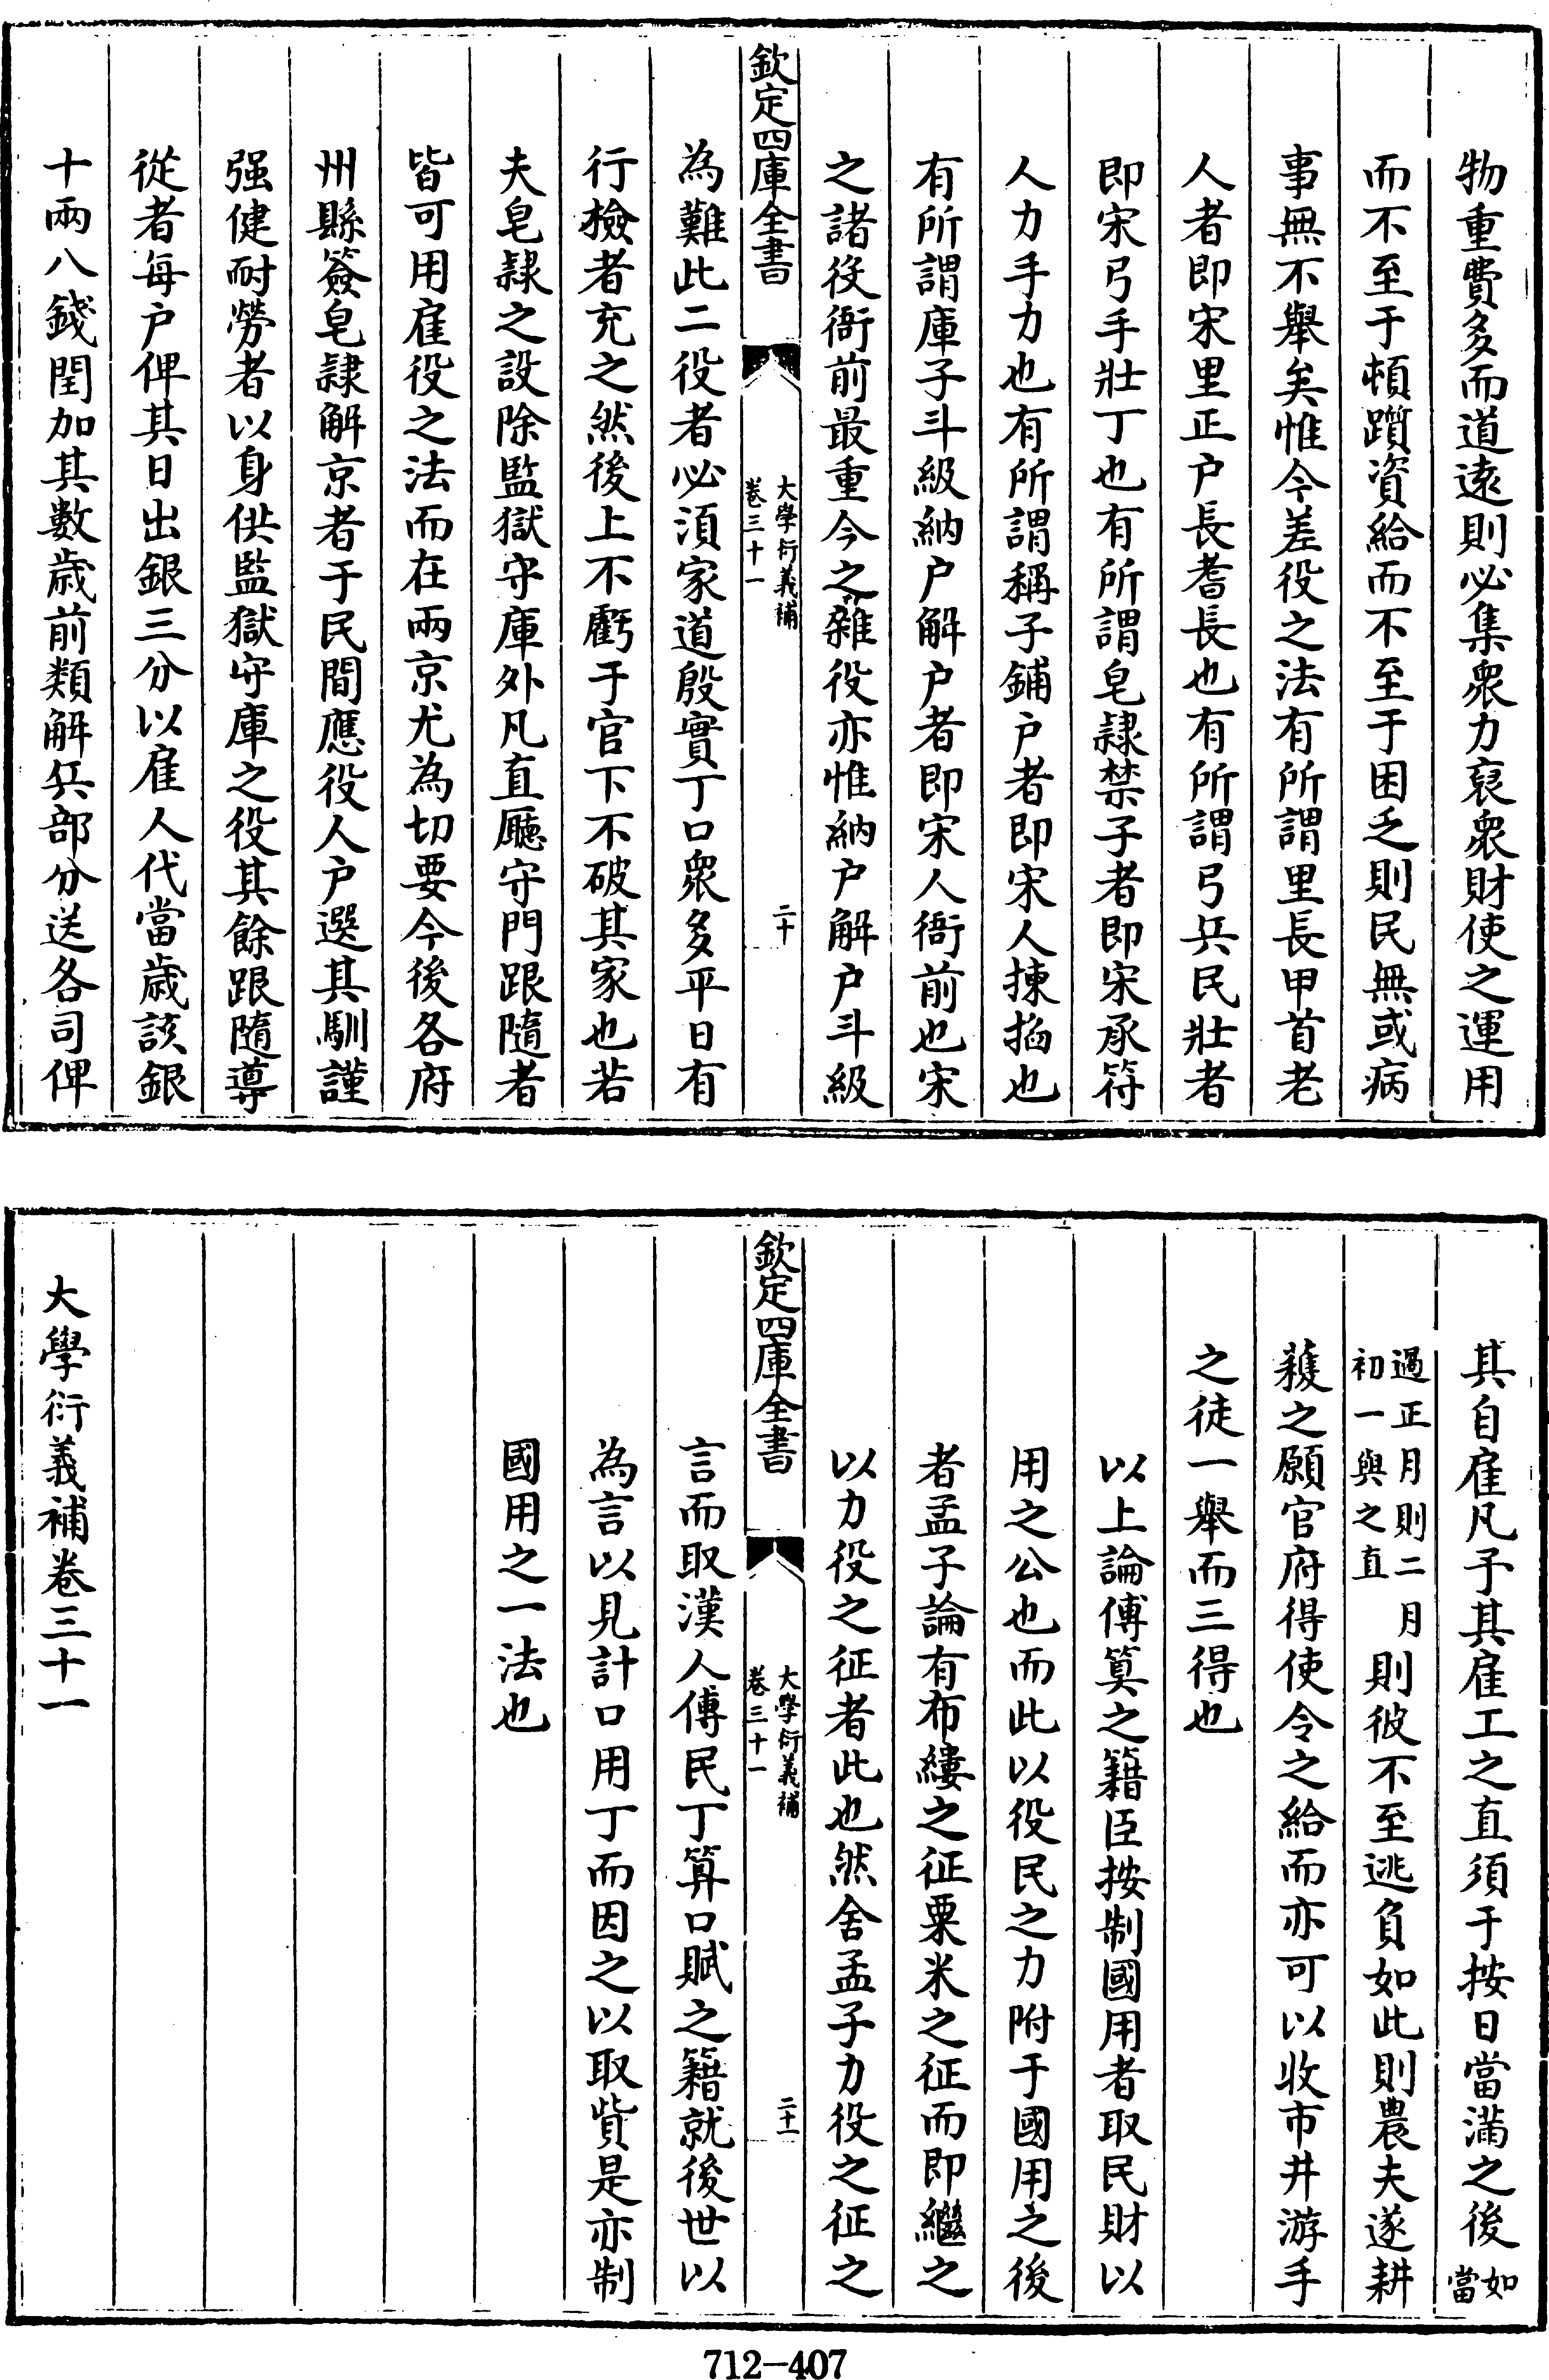 物重費多而道遠則必集衆力裒衆財使之運用
而不至于頓躓資給而不至于困乏則民無或病
事無不舉矣惟今差役之法有所謂里長甲首老
人者即宋里正户長耆長也有所謂弓兵民壯者
即宋弓手壯丁也有所謂皂隷禁子者即宋承符
人力手力也有所謂稱子鋪户者即宋人揀掐也
有所謂庫子斗級納户解户者即宋人衙前也宋
之諸役衙前最重今之雜役亦惟納户解户斗級
欽定四庫全書
大學衍義補
卷三十一
二十
為難此二役者必湏家道殷實丁口衆多平日有
行檢者充之然後上不虧于官下不破其家也若
夫皂隷之設除監獄守庫外凡直廳守門跟隨者
皆可用雇役之法而在兩京尤為切要今後各府
州縣簽皂隷解京者于民間應役人户選其馴謹
强健耐勞者以身供監獄守庫之役其餘跟隨導
從者每户俾其日出銀三分以雇人代當歳該銀
十兩八錢閏加其數歳前類解兵部分送各司俾
其自雇凡予其雇工之直須于按日當滿之後如當
過正月則二月初一與之直則彼不至逃負如此則農夫遂耕
穫之願官府得使令之給而亦可以收市井游手
之徒一舉而三得也
以上論傅算之籍臣按制國用者取民財以
用之公也而此以役民之力附于國用之後
者孟子論有布縷之征粟米之征而即繼之
以力役之征者此也然舍孟子力役之征之
欽定四庫全書
大學衍義補
卷三十一
二十一
言而取漢人傅民丁算口賦之籍就後世以
為言以見計口用丁而因之以取貲是亦制
國用之一法也
大學衍義補卷三十一
712-407